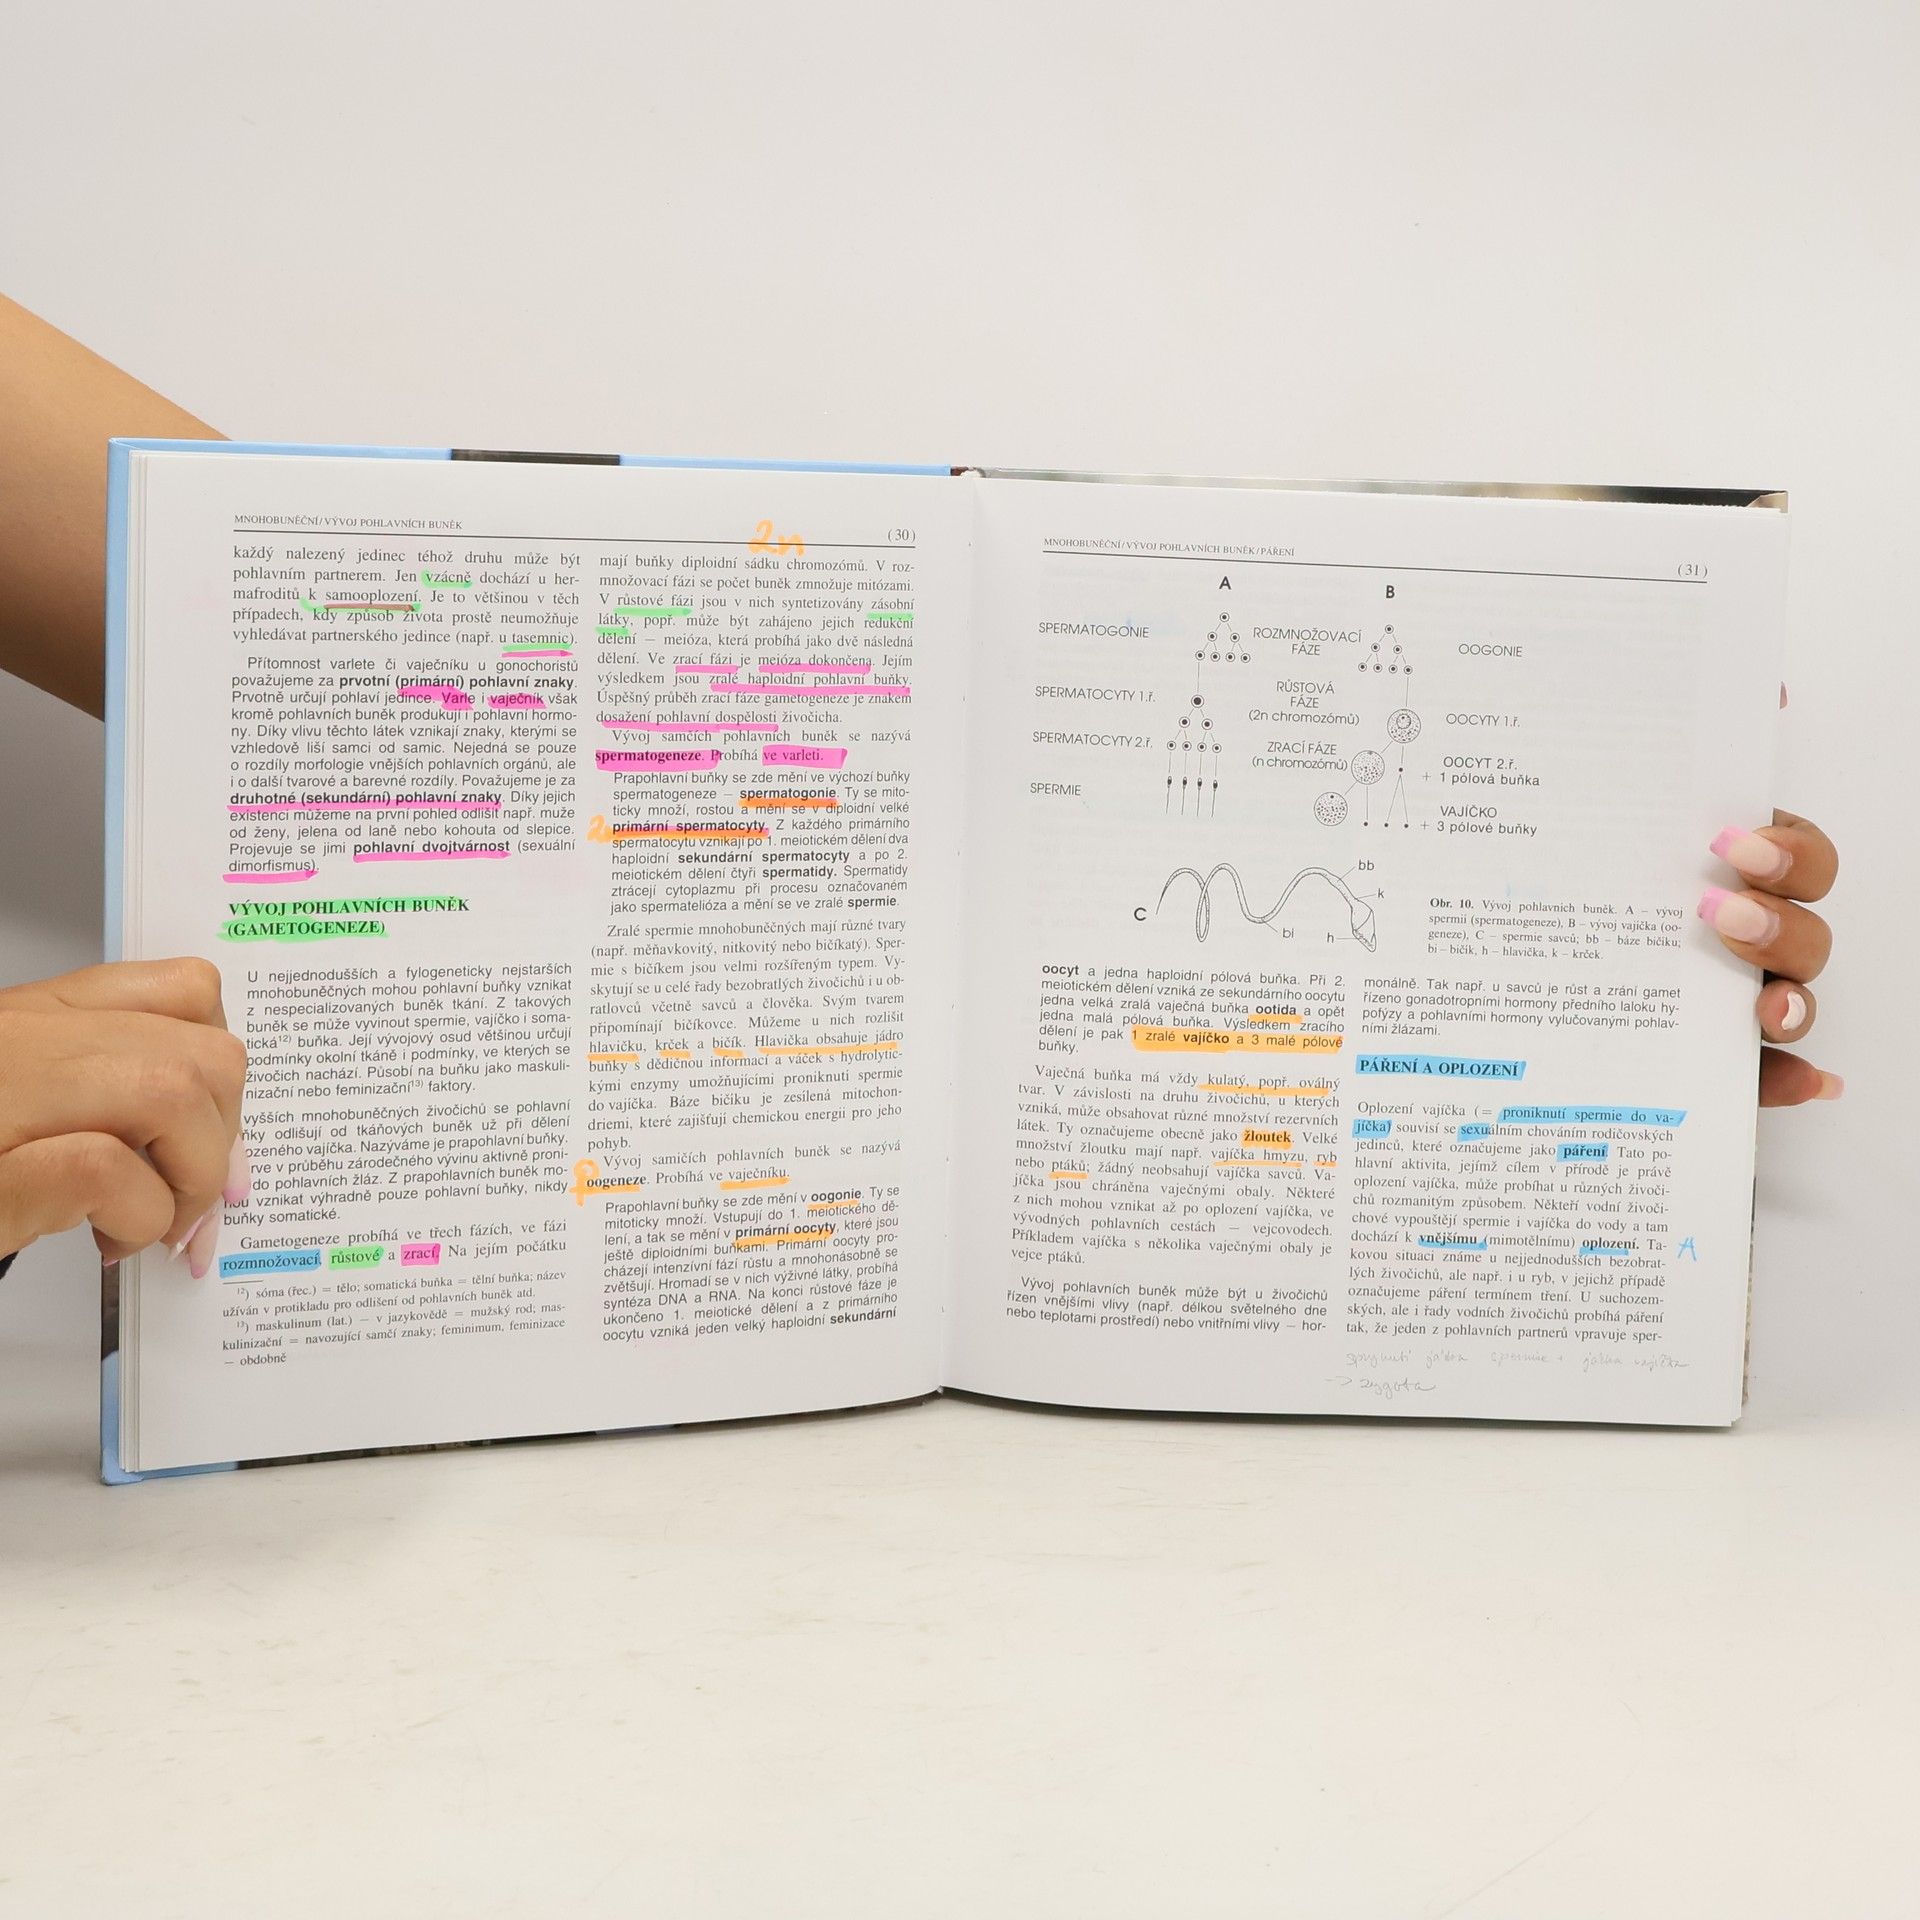 MNOHOBUNĚČNÍ/VÝVOJ POHLAVNÍCH BUNĚK
(30)
2n
každý nalezený jedinec téhož druhu může být
pohlavním partnerem. Jen vzácně dochází u her-
mafroditů k samooplození. Je to většinou v těch
případech, kdy způsob života prostě neumožňuje
vyhledávat partnerského jedince (např. u tasemnic).
Přítomnost varlete či vaječníku u gonochoristů
považujeme za prvotní (primární) pohlavní znaky.
Prvotně určují pohlaví jedince. Varle i vaječník však
kromě pohlavních buněk produkují i pohlavní hormo-
ny. Díky vlivu těchto látek vznikají znaky, kterými se
vzhledově liší samci od samic. Nejedná se pouze
o rozdíly morfologie vnějších pohlavních orgánů, ale
i o další tvarové a barevné rozdíly. Považujeme je za
druhotné (sekundární) pohlavní znaky. Díky jejich
existenci můžeme na první pohled odlišit např. muže
od ženy, jelena od laně nebo kohouta od slepice.
Projevuje se jimi pohlavní dvojtvárnost (sexuální
dimorfismus).
VÝVOJ POHLAVNÍCH BUNĚK
(GAMETOGENEZE)
U nejjednodušších a fylogeneticky nejstarších
mnohobuněčných mohou pohlavní buňky vznikat
z nespecializovaných buněk tkání. Z takových
buněk se může vyvinout spermie, vajíčko i soma-
tická¹²) buňka. Její vývojový osud většinou určují
podmínky okolní tkáně i podmínky, ve kterých se
živočich nachází. Působí na buňku jako maskuli-
nizační nebo feminizační¹³) faktory.
vyšších mnohobuněčných živočichů se pohlavní
ňky odlišují od tkáňových buněk už při dělení
ozeného vajíčka. Nazýváme je prapohlavní buňky.
rve v průběhu zárodečného vývinu aktivně proni-
do pohlavních žláz. Z prapohlavních buněk mo-
hou vznikat výhradně pouze pohlavní buňky, nikdy
buňky somatické.
Gametogeneze probíhá ve třech fázích, ve fázi
rozmnožovací, růstové a zrací. Na jejím počátku
¹²) sóma (řec.) = tělo; somatická buňka = tělní buňka; název
užíván v protikladu pro odlišení od pohlavních buněk atd.
¹³) maskulinum (lat.) — v jazykovědě = mužský rod; mas-
kulinizační = navozující samčí znaky; feminimum, feminizace
— obdobně
mají buňky diploidní sádku chromozómů. V roz-
množovací fázi se počet buněk zmnožuje mitózami.
V růstové fázi jsou v nich syntetizovány zásobní
látky, popř. může být zahájeno jejich redukční
dělení — meióza, která probíhá jako dvě následná
dělení. Ve zrací fázi je meióza dokončena. Jejím
výsledkem jsou zralé haploidní pohlavní buňky.
Úspěšný průběh zrací fáze gametogeneze je znakem
dosažení pohlavní dospělosti živočicha.
Vývoj samčích pohlavních buněk se nazývá
spermatogeneze. Probíhá ve varleti.
Prapohlavní buňky se zde mění ve výchozí buňky
spermatogeneze — spermatogonie. Ty se mito-
ticky množí, rostou a mění se v diploidní velké
primární spermatocyty. Z každého primárního
spermatocytu vznikají po 1. meiotickém dělení dva
haploidní sekundární spermatocyty a po 2.
meiotickém dělení čtyři spermatidy. Spermatidy
ztrácejí cytoplazmu při procesu označovaném
jako spermatelióza a mění se ve zralé spermie.
Zralé spermie mnohobuněčných mají různé tvary
(např. měňavkovitý, nitkovitý nebo bičíkatý). Sper-
mie s bičíkem jsou velmi rozšířeným typem. Vy-
skytují se u celé řady bezobratlých živočichů i u ob-
ratlovců včetně savců a člověka. Svým tvarem
připomínají bičíkovce. Můžeme u nich rozlišit
hlavičku, krček a bičík. Hlavička obsahuje jádro
buňky s dědičnou informací a váček s hydrolytic-
kými enzymy umožňujícími proniknutí spermie
do vajíčka. Báze bičíku je zesílená mitochon-
driemi, které zajišťují chemickou energii pro jeho
pohyb.
Vývoj samičích pohlavních buněk se nazývá
oogeneze. Probíhá ve vaječníku.
Prapohlavní buňky se zde mění v oogonie. Ty se
mitoticky množí. Vstupují do 1. meiotického dě-
lení, a tak se mění v primární oocyty, které jsou
ještě diploidními buňkami. Primární oocyty pro-
cházejí intenzívní fází růstu a mnohonásobně se
zvětšují. Hromadí se v nich výživné látky, probíhá
syntéza DNA a RNA. Na konci růstové fáze je
ukončeno 1. meiotické dělení a z primárního
oocytu vzniká jeden velký haploidní sekundární
MNOHOBUNĚČNÍ/VÝVOJ POHLAVNÍCH BUNĚK/PÁŘENÍ
(31)
A
B
SPERMATOGONIE
ROZMNOŽOVACÍ
FÁZE
OOGONIE
SPERMATOCYTY 1.ř.
RŮSTOVÁ
FÁZE
(2n chromozómů)
OOCYTY 1.ř.
SPERMATOCYTY 2.ř.
ZRACÍ FÁZE
(n chromozómů)
OOCYT 2.ř.
+ 1 pólová buňka
SPERMIE
VAJÍČKO
+ 3 pólové buňky
C
bb
k
bi
h
Obr. 10. Vývoj pohlavních buněk. A – vývoj
spermií (spermatogeneze), B – vývoj vajíčka (oo-
geneze), C – spermie savců; bb – báze bičíku;
bi – bičík, h – hlavička, k – krček.
oocyt a jedna haploidní pólová buňka. Při 2.
meiotickém dělení vzniká ze sekundárního oocytu
jedna velká zralá vaječná buňka ootida a opět
jedna malá pólová buňka. Výsledkem zracího
dělení je pak 1 zralé vajíčko a 3 malé pólové
buňky.
Vaječná buňka má vždy kulatý, popř. oválný
tvar. V závislosti na druhu živočichů, u kterých
vzniká, může obsahovat různé množství rezervních
látek. Ty označujeme obecně jako žloutek. Velké
množství žloutku mají např. vajíčka hmyzu, ryb
nebo ptáků; žádný neobsahují vajíčka savců. Va-
jíčka jsou chráněna vaječnými obaly. Některé
z nich mohou vznikat až po oplození vajíčka, ve
vývodných pohlavních cestách — vejcovodech.
Příkladem vajíčka s několika vaječnými obaly je
vejce ptáků.
Vývoj pohlavních buněk může být u živočichů
řízen vnějšími vlivy (např. délkou světelného dne
nebo teplotami prostředí) nebo vnitřními vlivy — hor-
monálně. Tak např. u savců je růst a zrání gamet
řízeno gonadotropními hormony předního laloku hy-
pofýzy a pohlavními hormony vylučovanými pohlav-
ními žlázami.
PÁŘENÍ A OPLOZENÍ
Oplození vajíčka (= proniknutí spermie do va-
jíčka) souvisí se sexuálním chováním rodičovských
jedinců, které označujeme jako páření. Tato po-
hlavní aktivita, jejímž cílem v přírodě je právě
oplození vajíčka, může probíhat u různých živoči-
chů rozmanitým způsobem. Někteří vodní živoči-
chové vypouštějí spermie i vajíčka do vody a tam
dochází k vnějšímu (mimotělnímu) oplození. Ta-
kovou situaci známe u nejjednodušších bezobrat-
lých živočichů, ale např. i u ryb, v jejichž případě
označujeme páření termínem tření. U suchozem-
ských, ale i řady vodních živočichů probíhá páření
tak, že jeden z pohlavních partnerů vpravuje sper-
splynutí jádra spermie + jádra vajíčka
-> zygota